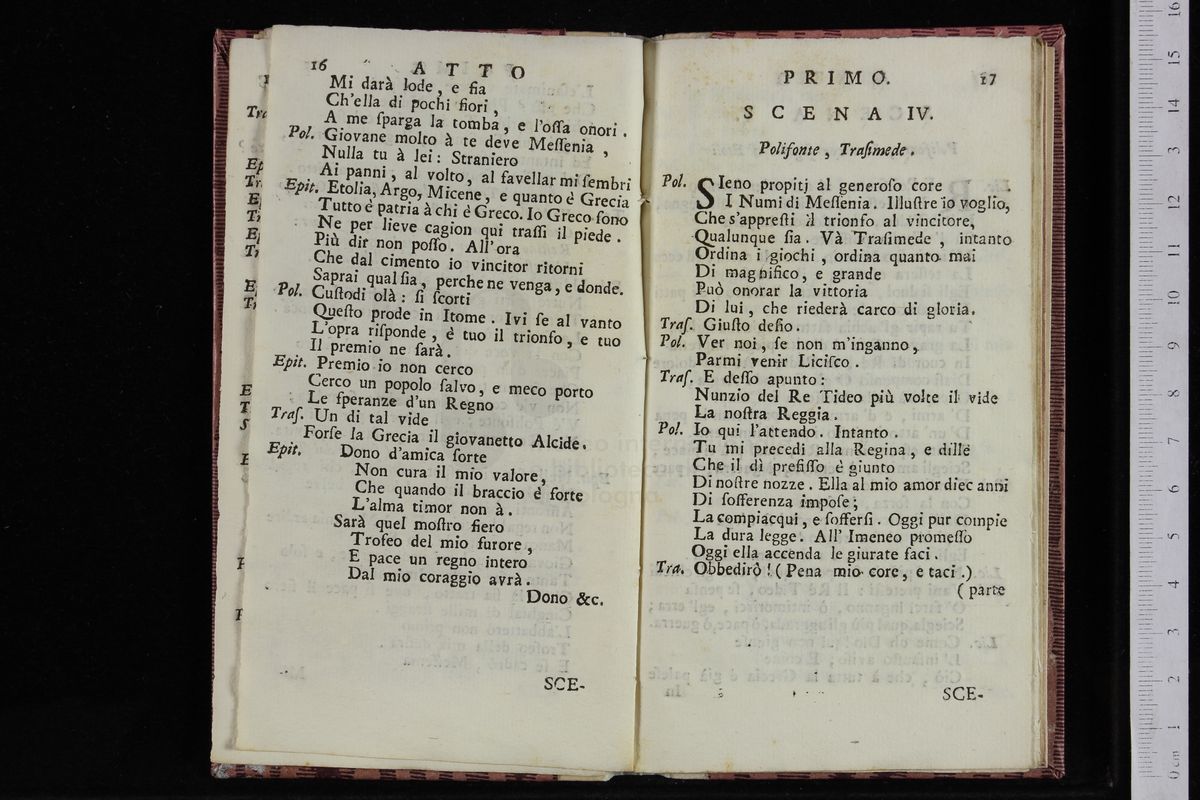 16 ATTO
Mi darà lode, e fia
Ch'ella di pochi fiori,
A me ſparga la tomba, e l'oſſa onori.
Pol. Giovane molto à te deve Meſſenia,
Nulla tu à lei: Straniero
Ai panni, al volto, al favellar mi ſembri
Epit. Etolia, Argo, Micene, e quanto è Grecia
Tutto è patria à chi è Greco. Io Greco ſono
Ne per lieve cagion qui traſſi il piede.
Più dir non poſſo. All'ora
Che dal cimento io vincitor ritorni
Saprai qual ſia, perche ne venga, e donde.
Pol. Cuſtodi olà: ſi ſcorti
Queſto prode in Itome. Ivi ſe al vanto
L'opra riſponde, è tuo il trionfo, e tuo
Il premio ne ſarà.
Epit. Premio io non cerco
Cerco un popolo ſalvo, e meco porto
Le ſperanze d'un Regno
Traſ. Un di tal vide
Forſe la Grecia il giovanetto Alcide.
Epit. Dono d'amica ſorte
Non cura il mio valore,
Che quando il braccio è forte
L'alma timor non à.
Sarà quel moſtro fiero
Trofeo del mio furore,
E pace un regno intero
Dal mio coraggio avrà.
Dono &c.
SCE-
PRIMO. 17
SCENA IV.
Polifonte, Traſimede.
Pol. SIeno propitj al generoſo core
I Numi di Meſſenia. Illuſtre io voglio,
Che s'appreſti il trionfo al vincitore,
Qualunque ſia. Và Traſimede, intanto
Ordina i giochi, ordina quanto mai
Di magnifico, e grande
Può onorar la vittoria
Di lui, che riederà carco di gloria.
Traſ. Giuſto deſio.
Pol. Ver noi, ſe non m'inganno,
Parmi venir Liciſco.
Traſ. E deſſo apunto:
Nunzio del Re Tideo più volte il vide
La noſtra Reggia.
Pol. Io qui l'attendo. Intanto.
Tu mi precedi alla Regina, e dille
Che il dì prefiſſo è giunto
Di noſtre nozze. Ella al mio amor diec anni
Di ſofferenza impoſe;
La compiacqui, e ſofferſi. Oggi pur compie
La dura legge. All' Imeneo promeſſo
Oggi ella accenda le giurate faci.
Tra. Obbedirò! (Pena mio core, e taci.)
(parte
SCE-